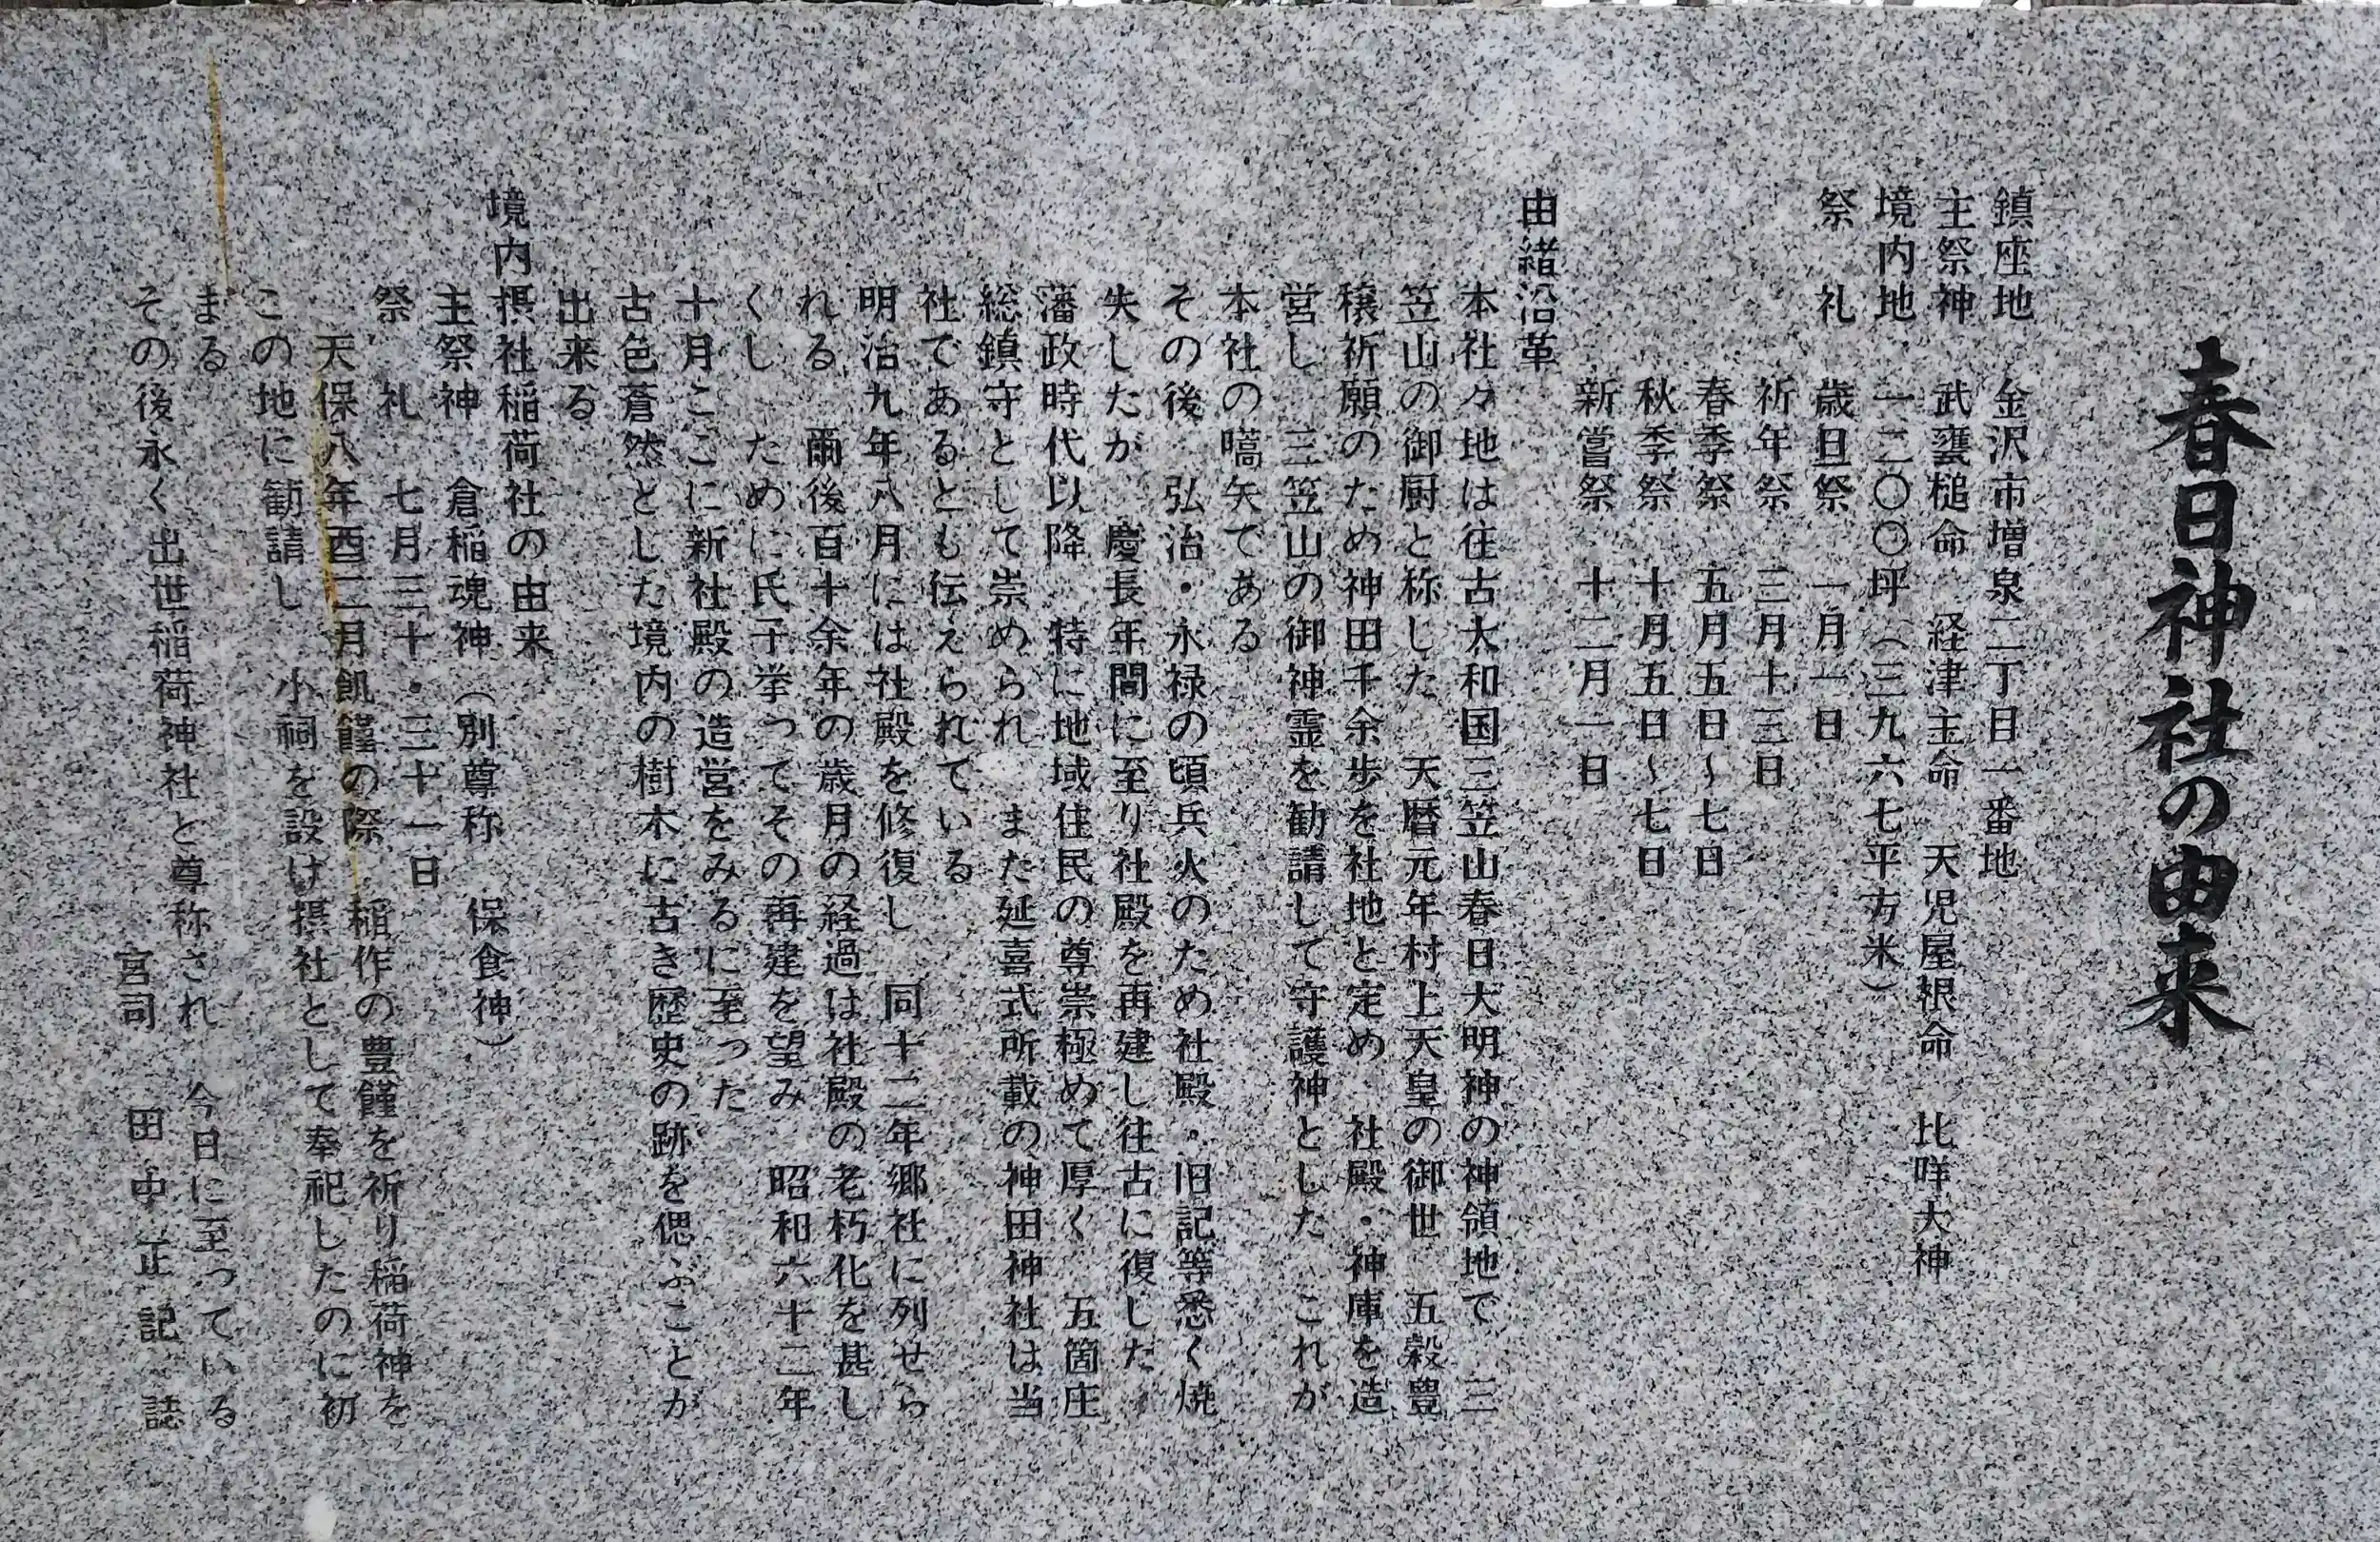 春日神社の由来
鎮座地　金沢市増泉二丁目一番地
主祭神　武甕槌命　経津主命　天児屋根命　比咩大神
境内地　一二〇〇坪（三九六七平方米）
祭　礼　歳旦祭　一月一日
祈年祭　三月十三日
春季祭　五月五日～七日
秋季祭　十月五日～七日
新嘗祭　十二月一日
由緒沿革
本社々地は往古大和国三笠山春日大明神の神領地で　三
笠山の御厨と称した　天暦元年村上天皇の御世　五穀豊
穣祈願のため神田千余歩を社地と定め　社殿・神庫を造
営し　三笠山の御神霊を勧請して守護神とした　これが
本社の嚆矢である
その後　弘治・永禄の頃兵火のため社殿・旧記等悉く焼
失したが　慶長年間に至り社殿を再建し往古に復した
藩政時代以降　特に地域住民の尊崇極めて厚く　五箇庄
総鎮守として崇められ　また延喜式所載の神田神社は当
社であるとも伝えられている
明治九年八月には社殿を修復し　同十二年郷社に列せら
れる　爾後百十余年の歳月の経過は社殿の老朽化を甚し
くし　ために氏子挙ってその再建を望み　昭和六十二年
十月ここに新社殿の造営をみるに至った
古色蒼然とした境内の樹木に古き歴史の跡を偲ぶことが
出来る
境内摂社稲荷社の由来
主祭神　倉稲魂神（別尊称　保食神）
祭　礼　七月三十・三十一日
天保八年酉二月飢饉の際　稲作の豊饉を祈り稲荷神を
この地に勧請し　小祠を設け摂社として奉祀したのに初
まる
その後永く出世稲荷神社と尊称され　今日に至っている
宮司　田中正記　誌